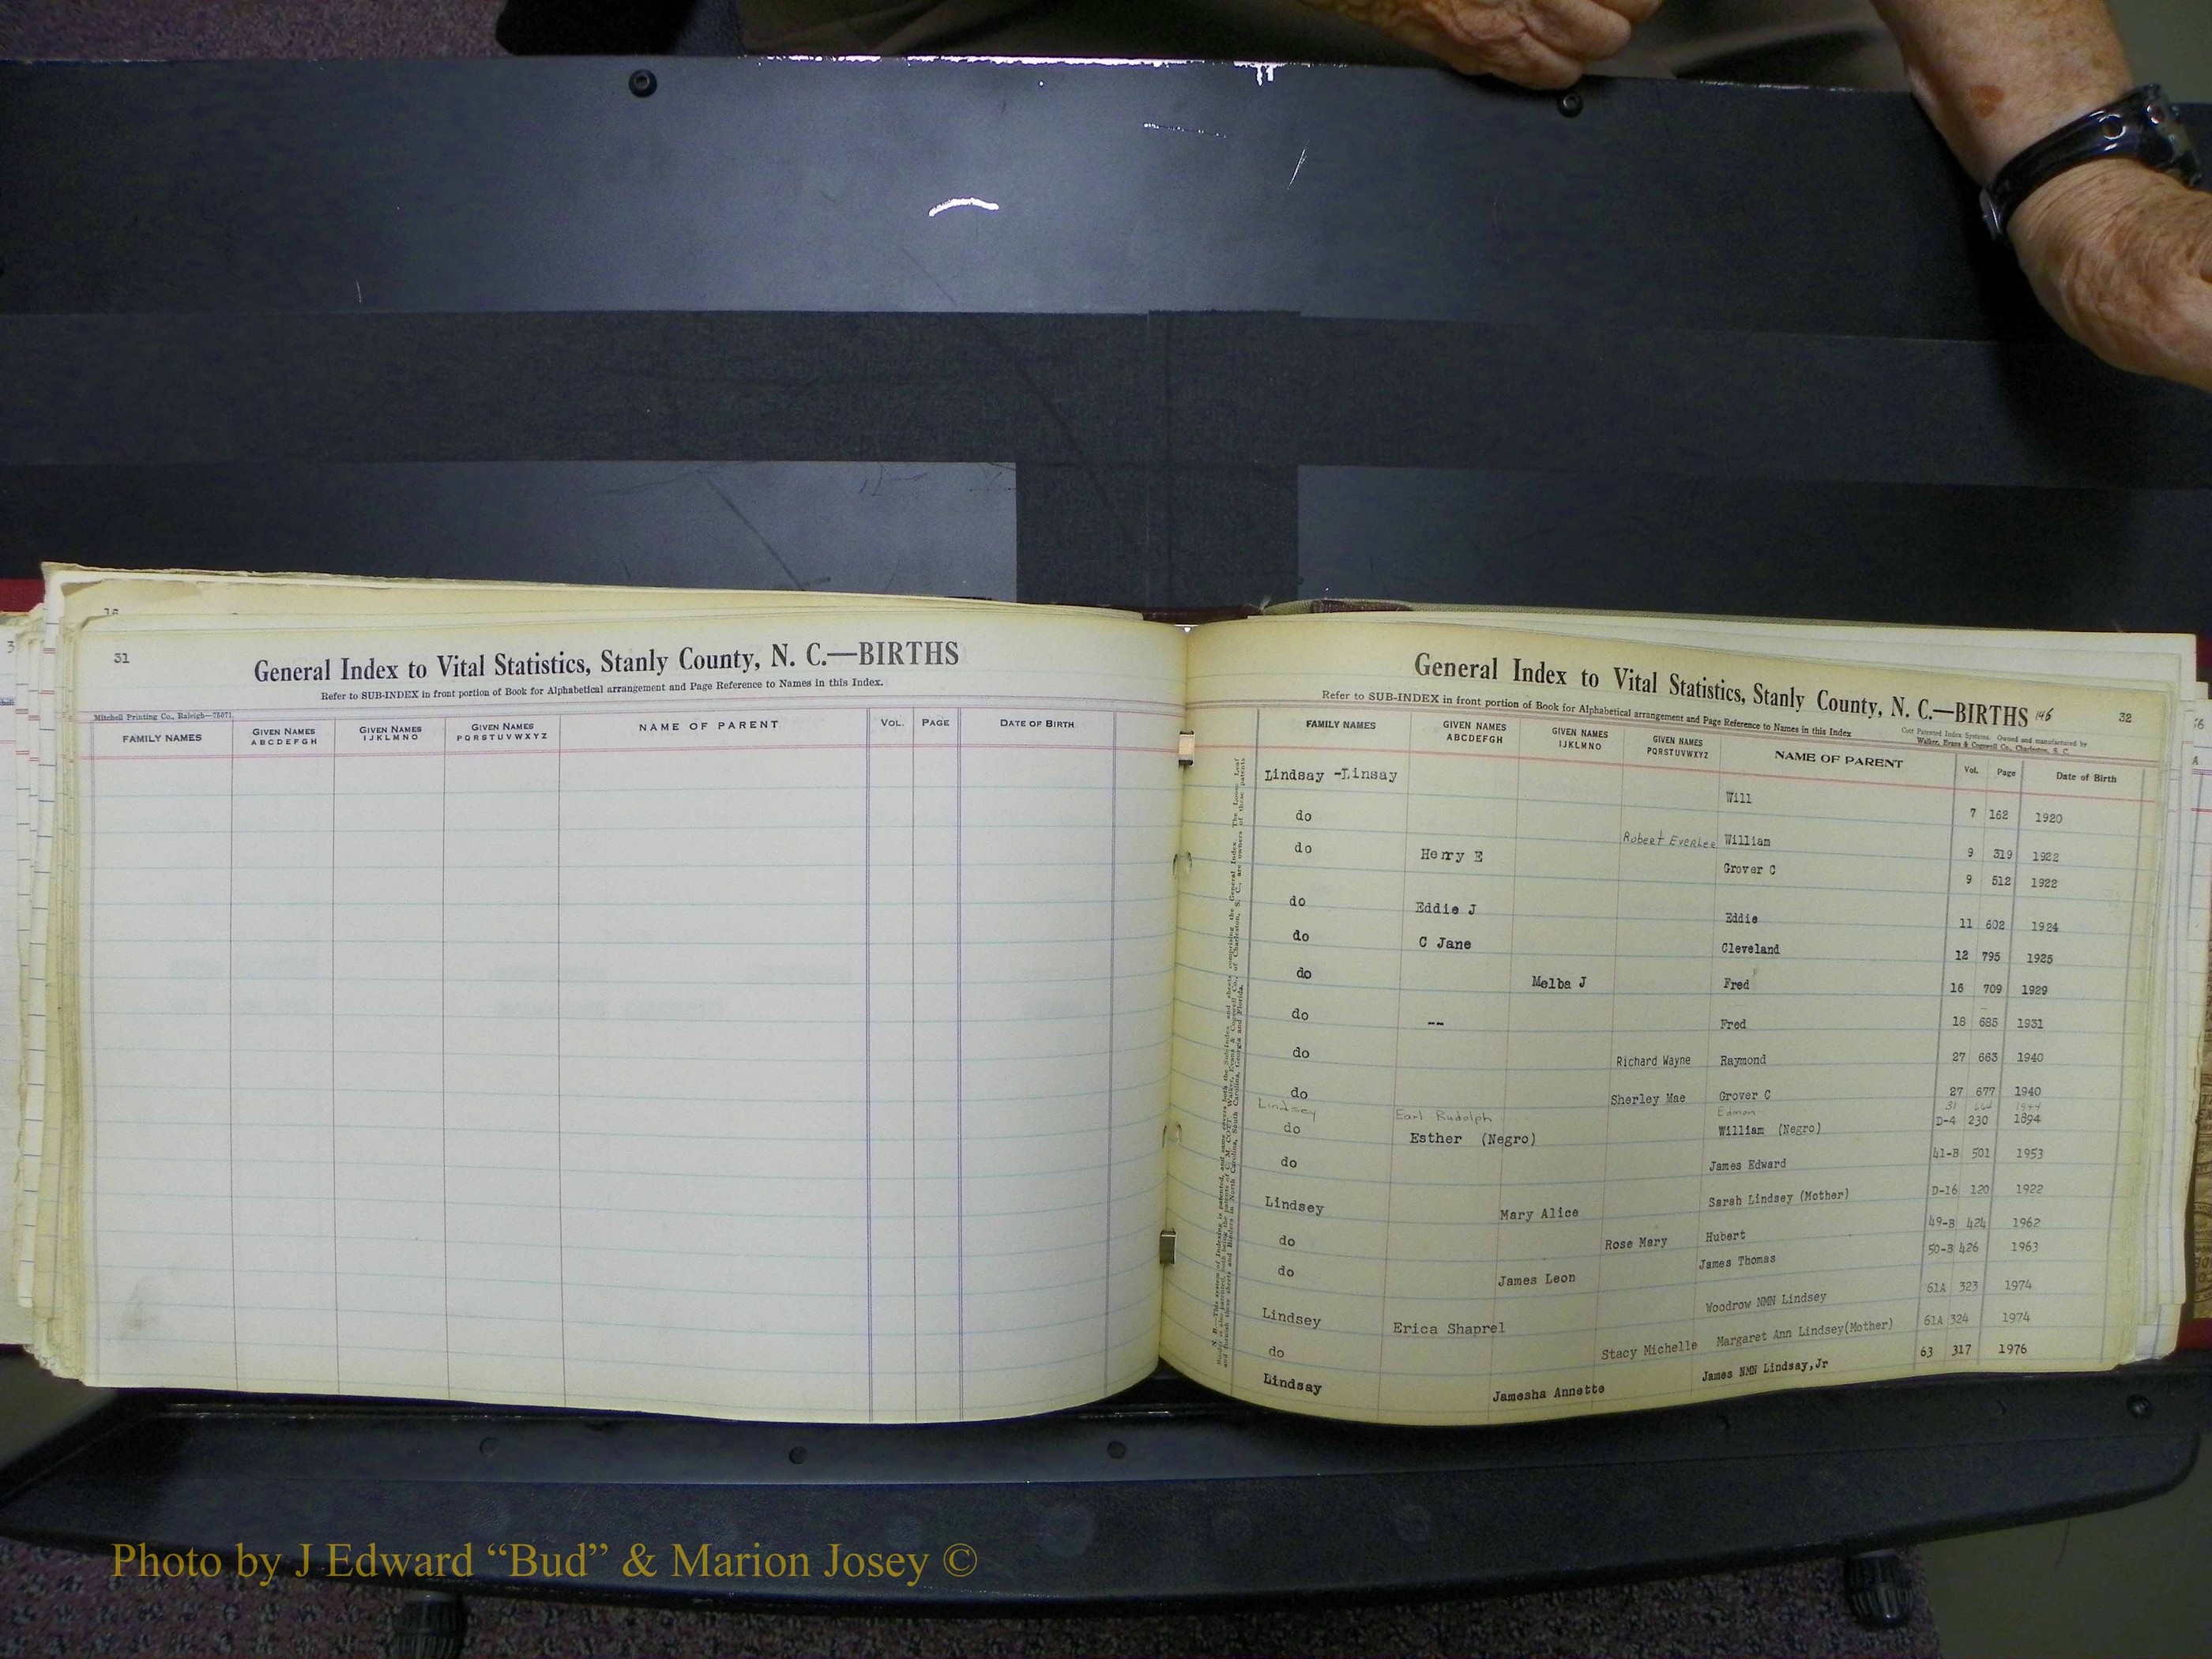 31
General Index to Vital Statistics, Stanly County, N. C.—BIRTHS
Refer to SUB-INDEX in front portion of Book for Alphabetical arrangement and Page Reference to Names in this Index.
Mitchell Printing Co., Raleigh—75071
FAMILY NAMES GIVEN NAMES ABCDEFGH GIVEN NAMES IJKLMNO GIVEN NAMES PQRSTUVWXYZ NAME OF PARENT VOL. PAGE DATE OF BIRTH
General Index to Vital Statistics, Stanly County, N. C.—BIRTHS 146 32
Refer to SUB-INDEX in front portion of Book for Alphabetical arrangement and Page Reference to Names in this Index
Cott Patented Index Systems. Owned and manufactured by
Walker, Evans & Cogswell Co., Charleston, S. C.
FAMILY NAMES GIVEN NAMES ABCDEFGH GIVEN NAMES IJKLMNO GIVEN NAMES PQRSTUVWXYZ NAME OF PARENT Vol. Page Date of Birth
Lindsay -Linsay Will 7 162 1920
do Robert Everlee William 9 319 1922
do Henry E Grover C 9 512 1922
do Eddie J Eddie 11 602 1924
do C Jane Cleveland 12 795 1925
do Melba J Fred 16 709 1929
do -- Fred 18 685 1931
do Richard Wayne Raymond 27 663 1940
do Sherley Mae Grover C 27 677 1940
Lindsey Earl Rudolph Edmon 31 1944
do Esther (Negro) William (Negro) D-4 230 1894
do James Edward 41-B 501 1953
Lindsey Mary Alice Sarah Lindsey (Mother) D-16 120 1922
do Rose Mary Hubert 49-B 424 1962
do James Leon James Thomas 50-B 426 1963
Lindsey Erica Shaprel Woodrow NMN Lindsey 61A 323 1974
do Stacy Michelle Margaret Ann Lindsey(Mother) 61A 324 1974
Lindsay Jamesha Annette James NMN Lindsay,Jr 63 317 1976
Photo by J Edward “Bud” & Marion Josey ©